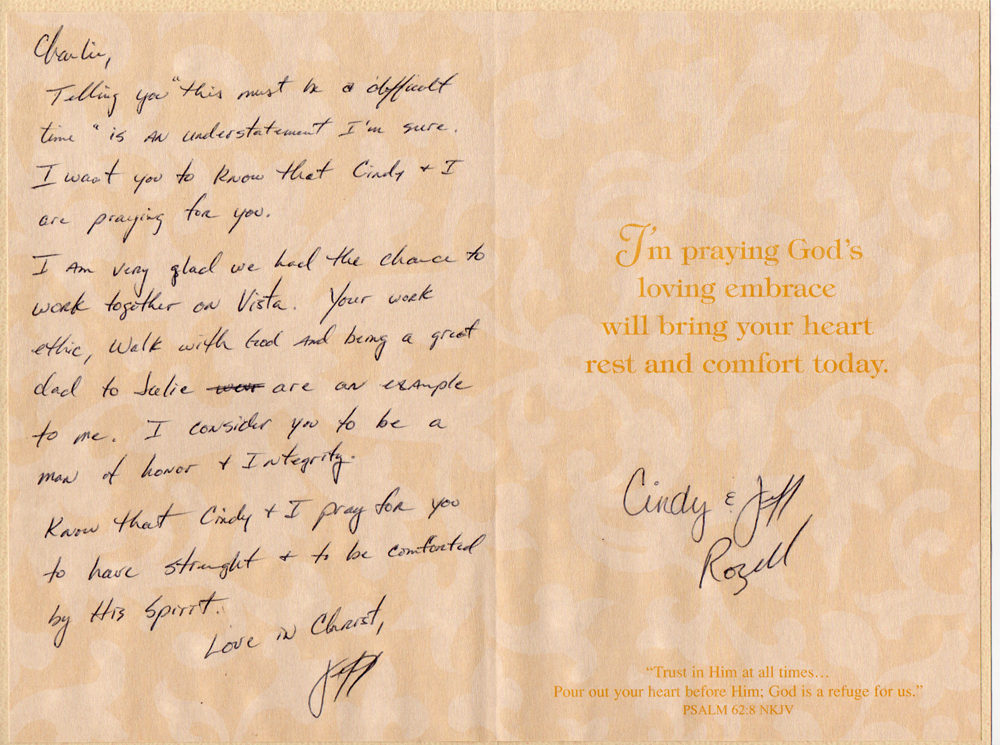 Charlie,
Telling you "this must be a difficult
time" is an understatement I'm sure.
I want you to know that Cindy + I
are praying for you.
I am very glad we had the chance to
work together on Vista. Your work
ethic, walk with God and being a great
dad to Julie are an example
to me. I consider you to be a
man of honor + Integrity.
Know that Cindy + I pray for you
to have strenght + to be comforted
by His Spirit.
Love in Christ,
Jeff
I'm praying God's
loving embrace
will bring your heart
rest and comfort today.
Cindy & Jeff
Rozell
"Trust in Him at all times…
Pour out your heart before Him; God is a refuge for us."
PSALM 62:8 NKJV